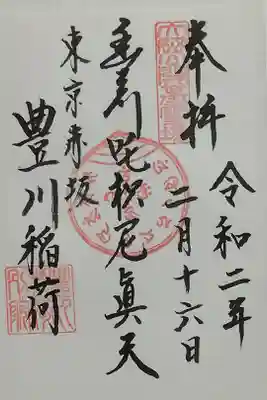 奉拝
令和二年
二月十六日
豊川吒枳尼眞天
東京赤坂
豊川稲荷